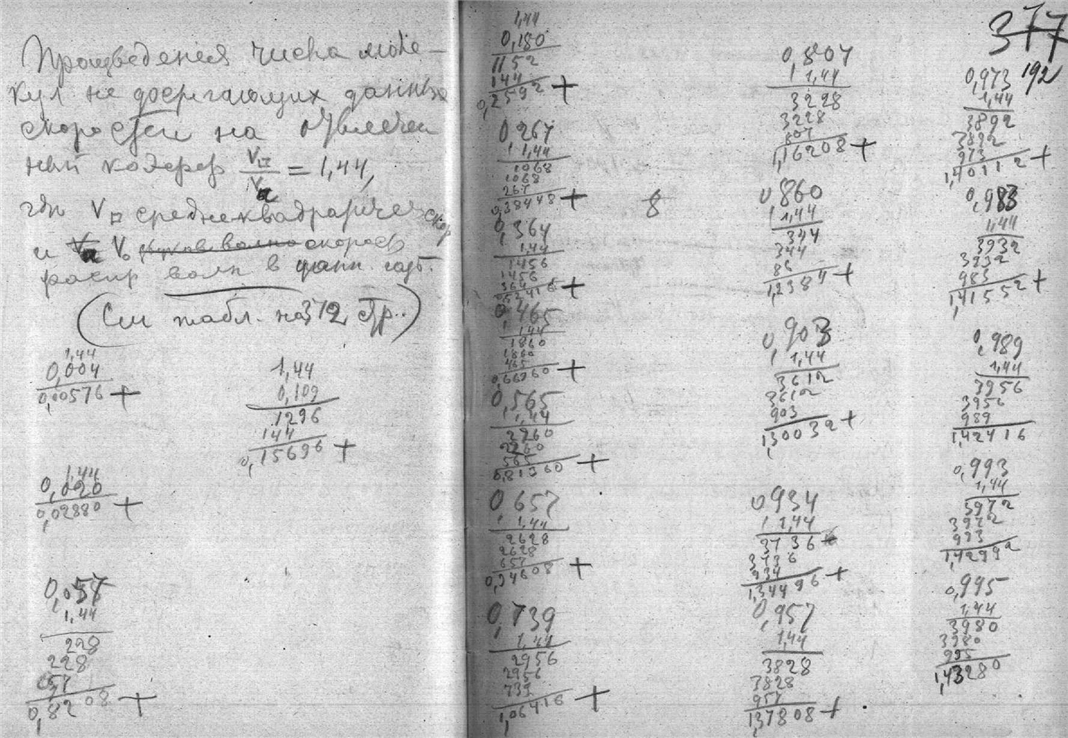 Произведения числа моле-
кул не достигающих данных
скоростей на увеличен
ный коэфер V□/Va = 1,44,
где V□ среднеквадратичес скор
и V скорость
распр волн в данн. сдб.
(См табл. на 372 стр..)
1,44
0,004
0,00576 +
1,44
0,020
0,02880 +
0,057
1,44
228
228
57
0,8208 +
1,44
0,109
1296
144
0,15696 +
1,44
0,180
1152
144
0,2592 +
0,267
1,44
1068
1068
267
0,38448 +
0,364
1,44
1456
1456
364
0,52416 +
0,465
1,44
1860
1860
465
0,66960 +
0,565
1,44
2260
2260
565
0,81360 +
0,657
1,44
2628
2628
657
0,94608 +
0,739
1,44
2956
2956
739
1,06416 +
8
0,807
1,44
3228
3228
807
1,16208 +
0,860
1,44
344
344
86
1,2384 +
0,903
1,44
3612
3612
903
1,30032 +
0,934
1,44
3736
3736
934
1,34496 +
0,957
1,44
3828
3828
957
1,37808 +
377
192
0,973
1,44
3892
3892
973
1,40112 +
0,983
1,44
3932
3932
983
1,41552 +
0,989
1,44
3956
3956
989
1,42416
0,993
1,44
3972
3972
993
1,42992
0,995
1,44
3980
3980
995
1,43280